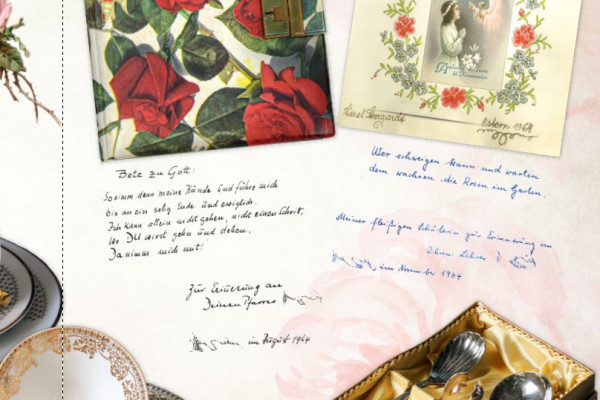 Ostern 1964
Bete zu Gott:
So nimm denn meine Hände und führe mich
bis an ein selig Ende und ewiglich.
Ich kann allein nicht gehen, nicht einen Schritt,
wo DU wirst gehn und stehen,
Da nimm mich mit!
Zur Erinerung an
Deinen Pfarrer
im August 1964
Wer schweigen kann und warten
dem wachsen die Rosen im Garten.
Meiner fleißigen Schülerin zur Erinnerung an
Ihren Lehrer
im November 1964